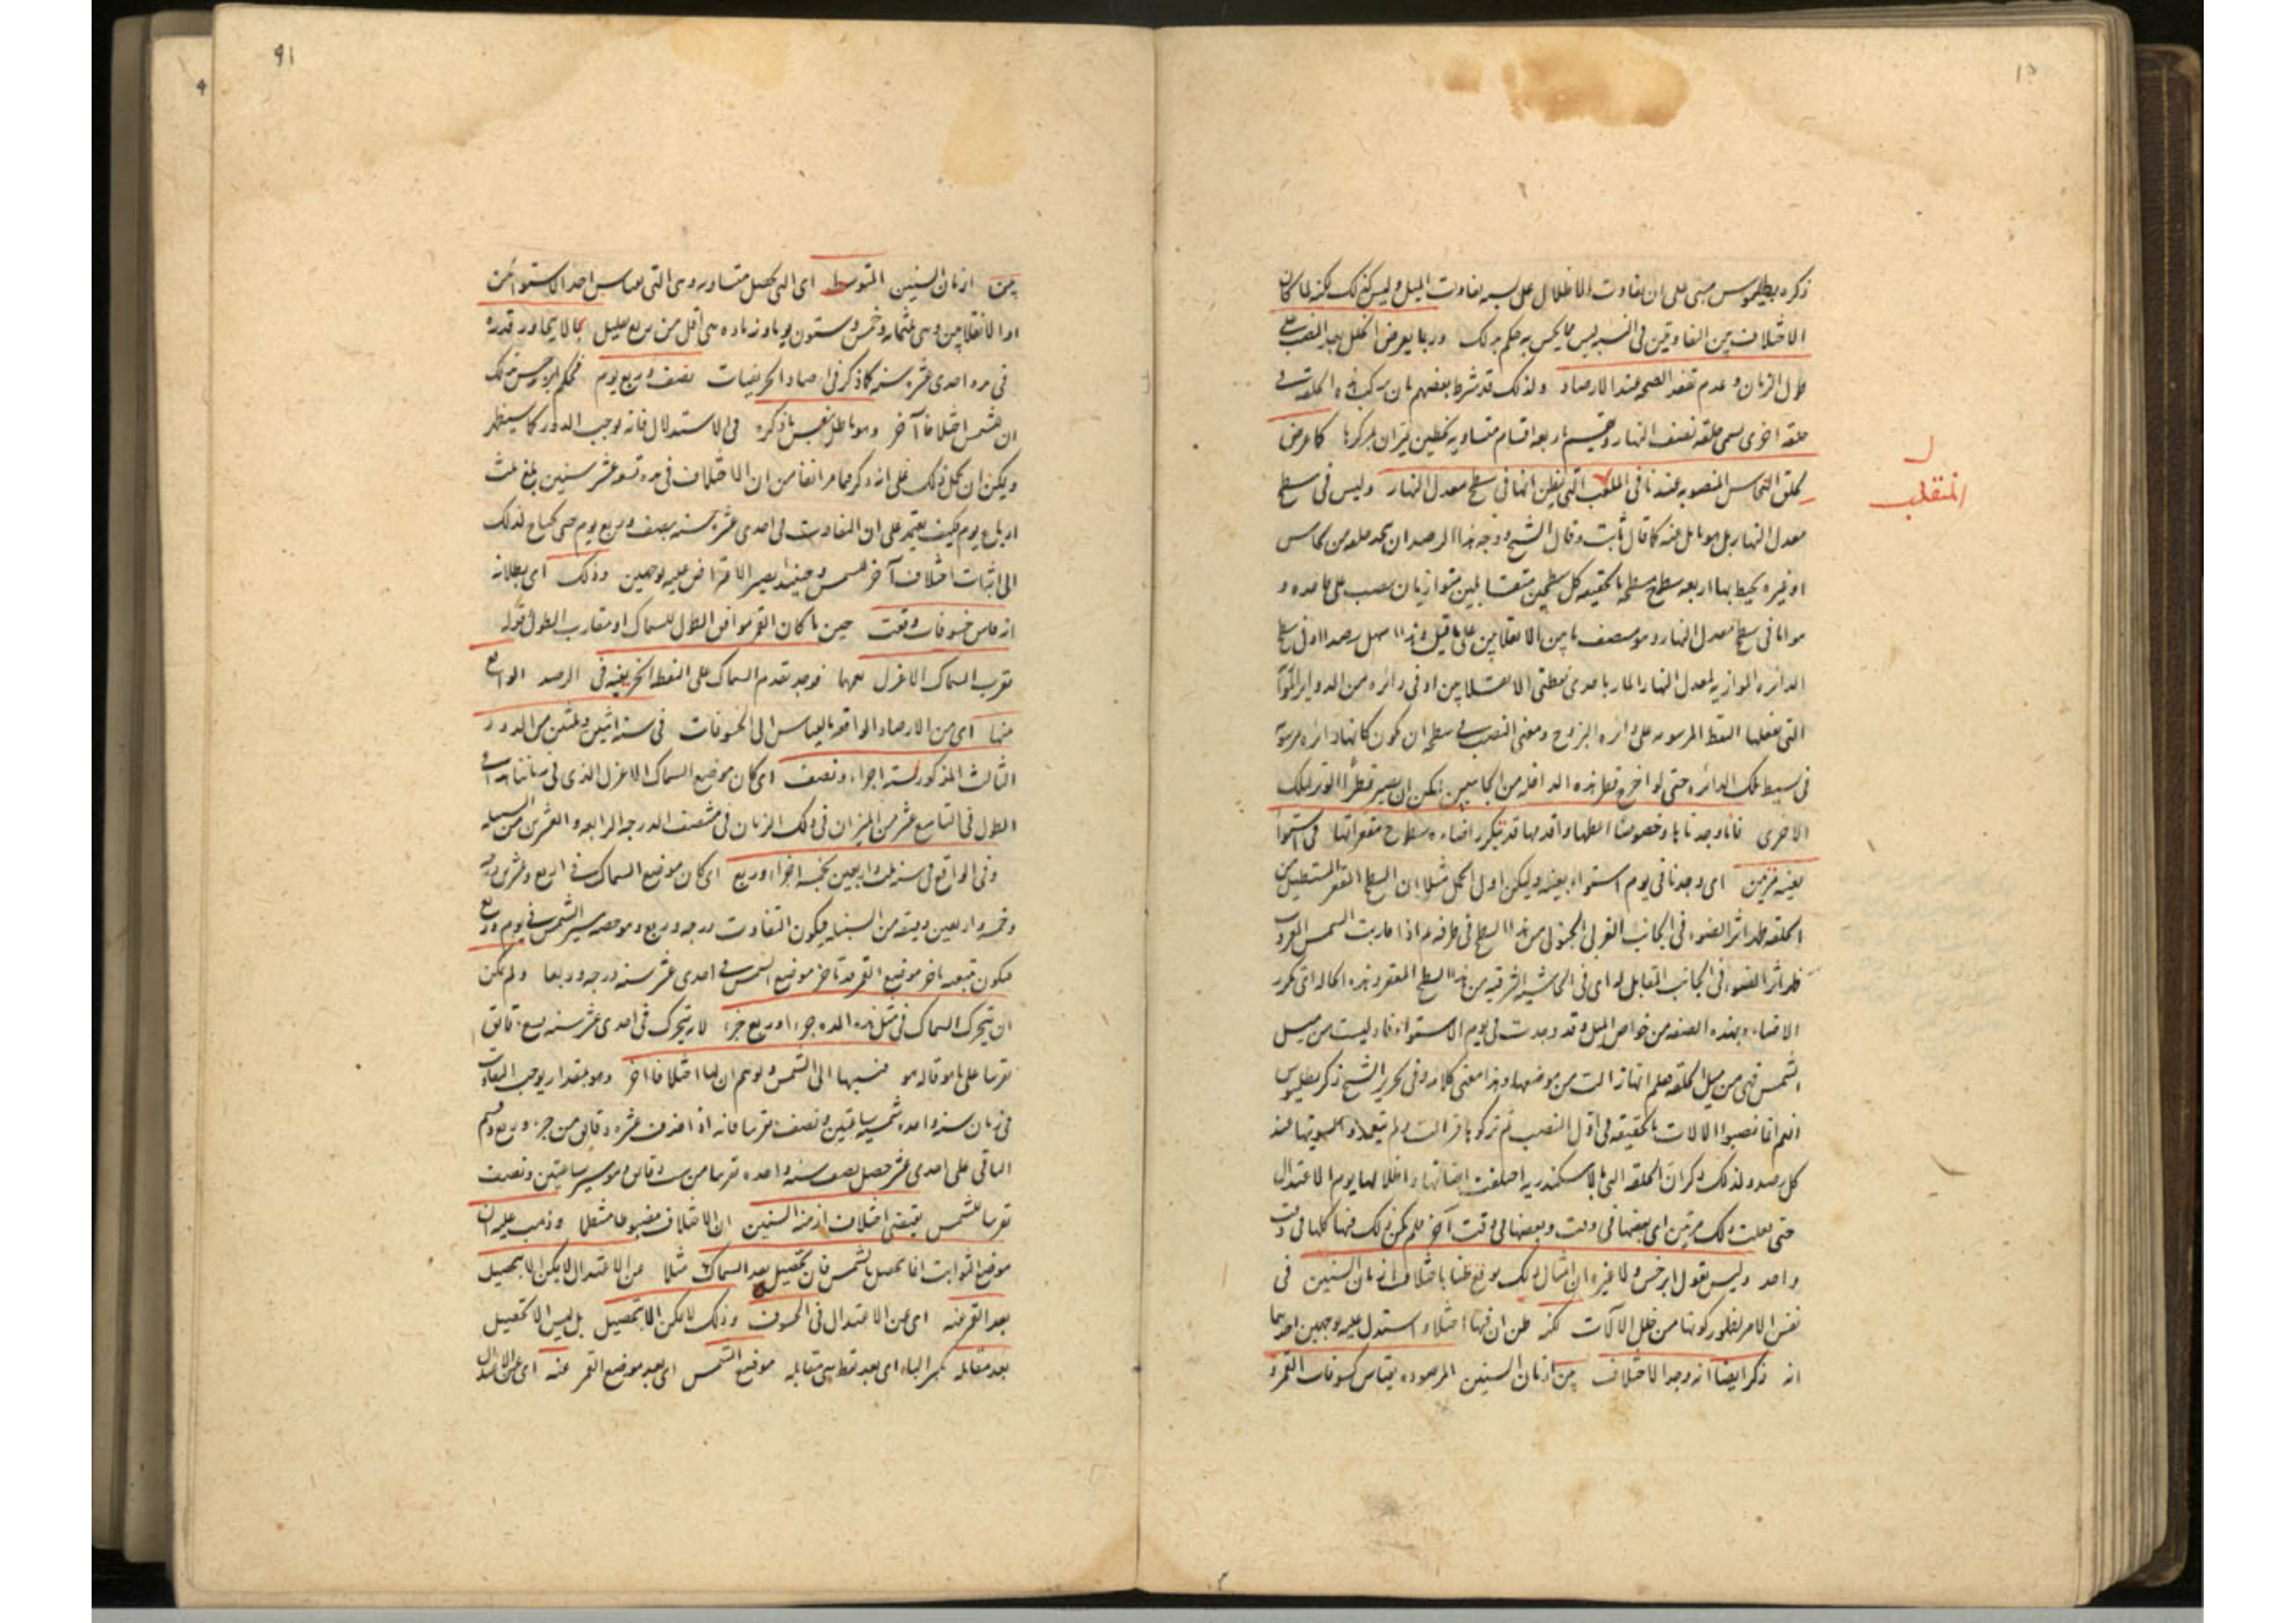 ذكره بطلميوس مبنى على ان تفاوت الاظلال على نسبة تفاوت الميل وليس كذلك لكنه لما كان
الاختلاف بين التفاوتين فى النسبة ليس مما يحس به حكم بذلك وربما يعرض الخلل بعد النصب
طول الزمان وعدم تفقد الصحة عند الارصاد ولذلك قد شرط بعضهم بان يركب هذه الحلقة فى
حلقة اخرى يسمى حلقة نصف النهار وتقسم اربعة اقسام متساوية بخطين يمران بمركزها كما عرض
لحلق النحاس المنصوبة عندنا فى الملعب التى يظن انها فى سطح معدل النهار وليس فى سطح
المنقلب
معدل النهار بل هو مايل عنه كما قال ثابت وقال الشيخ ووجه هذا الرصد ان يتخذ حلقة من نحاس
او غيره يحيط بها اربعة سطوح مسطحة بالحقيقة كل سطحين متقابلين متوازيان ينصب على قاعدة و
هو اما فى سطح معدل النهار وهو منتصف ما بين الانقلابين على ما قيل وهذا سهل رصدا او فى سطح
الدائرة الموازية لمعدل النهار المار باحدى نقطتى الانقلابين او فى دائرة من الدواير
التى تفعلها النقط المرسومة على دائرة البروج ومعنى النصب فى سطحه ان يكون كانها دائرة مرسومة
فى بسيط تلك الدائرة حتى لو اخرج قطر هذه الداخلة من الجانبين امكن ان يصير قطرا لتلك
الاخرى فانا وجدناها وخصوصا اعظمها واقدمها قد يتكرر اضاءة سطوح مقعراتها فى استواء
بعينه مرتين اى وجدنا فى يوم استواء بعينه وليكن اول الحمل مثلا ان السطح المقعر
الحلقة ظهر اثر الضوء فى الجانب الغربى الجنوبى من هذا السطح فى طرفه ثم اذا قاربت الشمس الغروب
ظهر اثر الضوء فى الجانب المقابل له اى فى الحاشية الشرقية من هذا السطح المقعر وهذه الحالة اى تكرر
الاضاءة بهذه الصفة من خواص الميل وقد وجدت فى يوم الاستواء فاذ ليست من ميل
الشمس فهى من ميل الحلقة فعلم انها زالت من موضعها وهذا معنى كلامه وفى تحرير الشيخ ذكر بطلميوس
انهم انما نصبوا الالات بالحقيقة فى اول النصب ثم تركوها فزالت ولم يتعهدوا تسويتها عند
كل رصد ولذلك ذكر ان الحلقة التى بالاسكندرية اختلفت اضائتها واظلالها يوم الاعتدال
حتى فعلت ذلك مرتين اى بعضها فى وقت وبعضها فى وقت آخر فلم يمكن ذلك فيها كلها فى وقت
واحد وليس يقول ابرخس ولا غيره ان امثال ذلك يوقع ظنا باختلاف ازمان السنين فى
نفس الامر لظهور كونها من خلل الآلات لكنه ظن ان فيها اختلافا واستدل عليه بوجهين احدهما
انه ذكر ايضا انه وجد الاختلاف بين ازمان السنين المرصودة بقياس كسوفات القمر و
91
بين ازمان السنين المتوسطة اى التى تحصل متساوية وهى التى بقياس احد الاستوائين
او الانقلابين وهى ثلثمائة وخمس وستون يوما وزيادة هى اقل من ربع بقليل بما لا يجاوز قدره
فى مدة احدى عشرة سنة كما ذكر فى ارصاد الخريفيات نصف وربع يوم فحكم ابرخس من ذلك
ان للشمس اختلافا آخر وهو باطل بنفس ما ذكره فى الاستدلال فانه يوجب الدور كما سيظهر
ويمكن ان يحمل ذلك على انه ذكر فيما مر انفا من ان الاختلاف فى مدة تسعة عشر سنين بلغ ثلث
ارباع يوم فكيف يعتمد على ان التفاوت فى احدى عشرة سنة نصف وربع يوم حتى يحتاج لذلك
الى اثبات اختلاف آخر للشمس وحينئذ يصير الاعتراض عليه بوجهين وذلك اى بطلانه
انه قاس خسوفات وقعت حين ما كان القمر موافق الطول للسماك او مقارب الطول
بقرب السماك الاعزل فوجد تقدم السماك على النقطة الخريفية فى الرصد الواقع
منها اى من الارصاد الواقعة بالقياس الى الخسوفات فى سنة اثنين وثلثين من الدور
الثالث المذكور ستة اجزاء ونصف اى كان موضع السماك الاعزل الذى فى زماننا هذا
الطول فى التاسع عشر من الميزان فى ذلك الزمان فى منتصف الدرجة الرابعة والعشرين من السنبلة
وفى الواقع فى سنة ثلث واربعين خمسة اجزاء وربع اى كان موضع السماك فى اربع وعشرين درجة
وخمس واربعين دقيقة من السنبلة فيكون التفاوت درجة وربع وهو حصة سير الشمس فى يوم وربع
فيكون تبعه تاخر موضع القمر قد تاخر موضع الشمس فى احدى عشر سنة درجة وربعا ولم يمكن
ان يتحرك السماك فى مثل هذه المدة جزء او ربع جزء لانه يتحرك فى احدى عشر سنة سبع دقائق
تقريبا على ما قاله هو فنسبها الى الشمس وتوهم ان لها اختلافا آخر وهو بمقدار يوجب التفاوت
فى زمان سنة واحدة شمسية ساعتين ونصف تقريبا فانه اذا حذف عشرة دقائق من جزء وربع وقسم
الباقى على احدى عشر حصل نصف سنة واحدة تقريبا من ست دقائق وهو مسير ساعتين ونصف
تقريبا للشمس يقتضى اختلاف ازمنة السنين ان الاختلاف مضبوطا منتقلا وذهب عليه ان
موضع الثوابت انما يحصل بالشمس فان تحصيل بعد السماك مثلا عن الاعتدال لا يمكن الا بتحصيل
بعد القمر عنه اى عن الاعتدال فى الخسوف وذلك لا يمكن الا بتحصيل بل ليس الا تحصيل
بعد مقابله بكسر الباء اى بعد نقطة هى مقابلة موضع الشمس اى بعد موضع القمر عنه اى عن الاعتدال